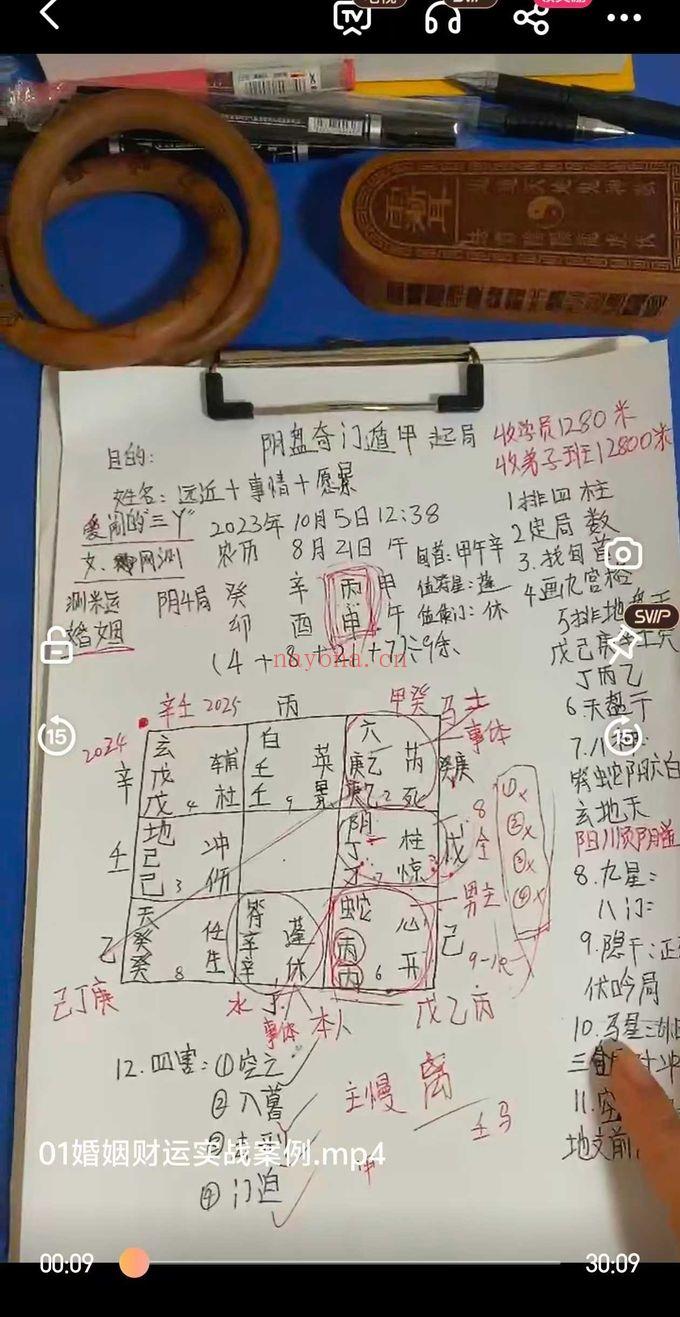 TV
SVIP
阴盘奇门遁甲起局
收学员1280米
收弟子班12800米
目的:
姓名:远近十事情十愿景
爱闹的"三丫"
2023年10月5日12:38
女、网测
农历 8月21日 午
旬首:甲午辛
值符星:蓬
值使门:休
测米运
婚姻
阴4局
癸 辛 丙 甲
卯 酉 申 午
(4+8+21+7)÷9余
nayona.cn
1排四柱
2定局数
3.找旬首
4画九宫格
5排地盘干
戊己庚辛壬癸
丁丙乙
6.天盘干
7.八神:
符蛇阴六白
玄地天
8.九星:
八门:
9.隐干:
伏吟局
10.马星:
11.空
地支前
SVIP
15
15
辛壬 2025
丙
甲癸
马
2024
辛
玄
戊 辅
戊 4 柱
白
壬 英
壬 9 景
六
庚乙 芮
庚乙 2 死
事体
癸庚
壬
地
己 冲
己 3 伤
阴
丁 柱
丁 7 惊
戊
8
全
①×
②×
③×
④×
男主
己
天
癸 任
癸 8 生
符
辛 蓬
辛 1 休
蛇
丙 心
丙 6 开
己
己丁庚
水
事体
本人
戊乙丙
12.四害:①空亡
②入墓
④门迫
主慢 离
壬马
冲
01婚姻财运实战案例.mp4
00:09
30:09